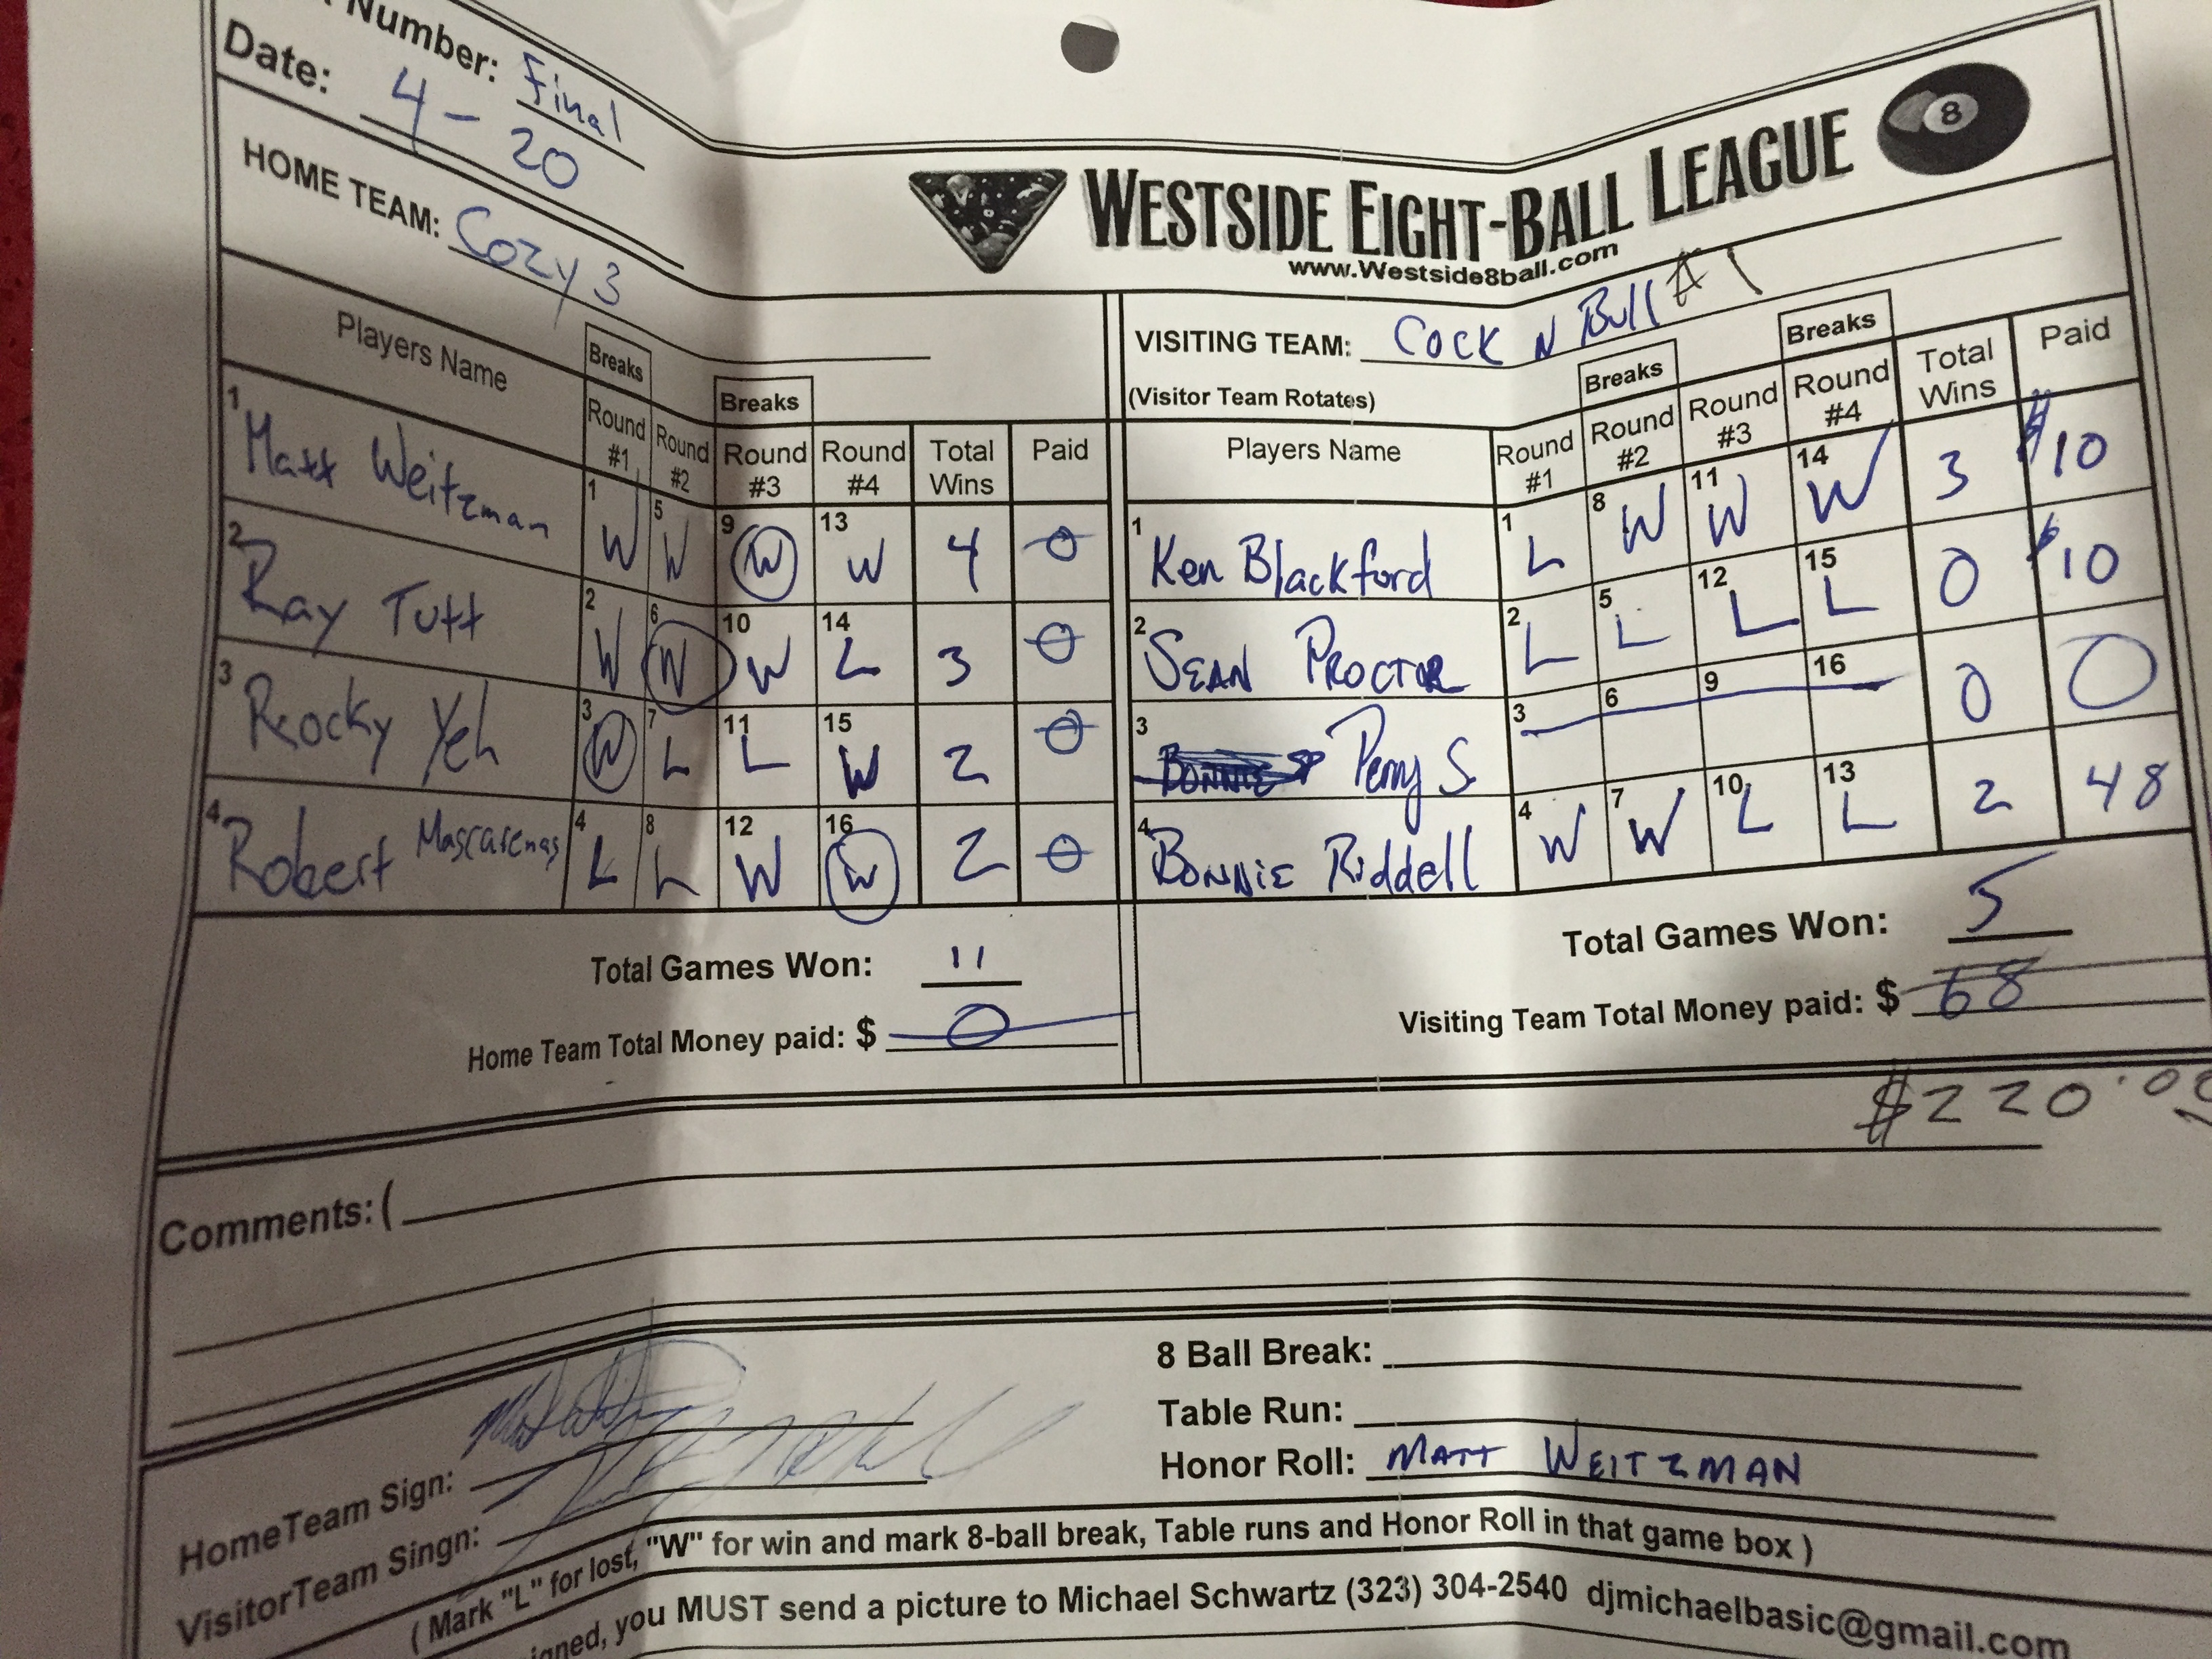 Number: Final
Date: 4-20
WESTSIDE EIGHT-BALL LEAGUE 8
www.Westside8ball.com
HOME TEAM: Cozy 3
VISITING TEAM: Cock N Bull #1
(Visitor Team Rotates)
Players Name Breaks Round #1 Round #2 Breaks Round #3 Round #4 Total Wins Paid
1 Matt Weitzman 1 W 5 W 9 W 13 W 4 0
2 Ray Tutt 2 W 6 W 10 W 14 L 3 0
3 Rocky Yeh 3 W 7 L 11 L 15 W 2 0
4 Robert Mascarenas 4 L 8 L 12 W 16 W 2 0
Total Games Won: 11
Home Team Total Money paid: $ 0
Players Name Round #1 Breaks Round #2 Round #3 Breaks Round #4 Total Wins Paid
1 Ken Blackford 1 L 8 W 11 W 14 W 3 $10
2 SEAN PROCTOR 2 L 5 L 12 L 15 L 0 $10
3 Perry S 3 6 9 16 0 0
4 BONNIE Riddell 4 W 7 W 10 L 13 L 2 48
Total Games Won: 5
Visiting Team Total Money paid: $ 68
$220.00
Comments: (
8 Ball Break:
Table Run:
Honor Roll: MATT WEITZMAN
HomeTeam Sign:
VisitorTeam Singn:
( Mark "L" for lost, "W" for win and mark 8-ball break, Table runs and Honor Roll in that game box )
you MUST send a picture to Michael Schwartz (323) 304-2540 djmichaelbasic@gmail.com